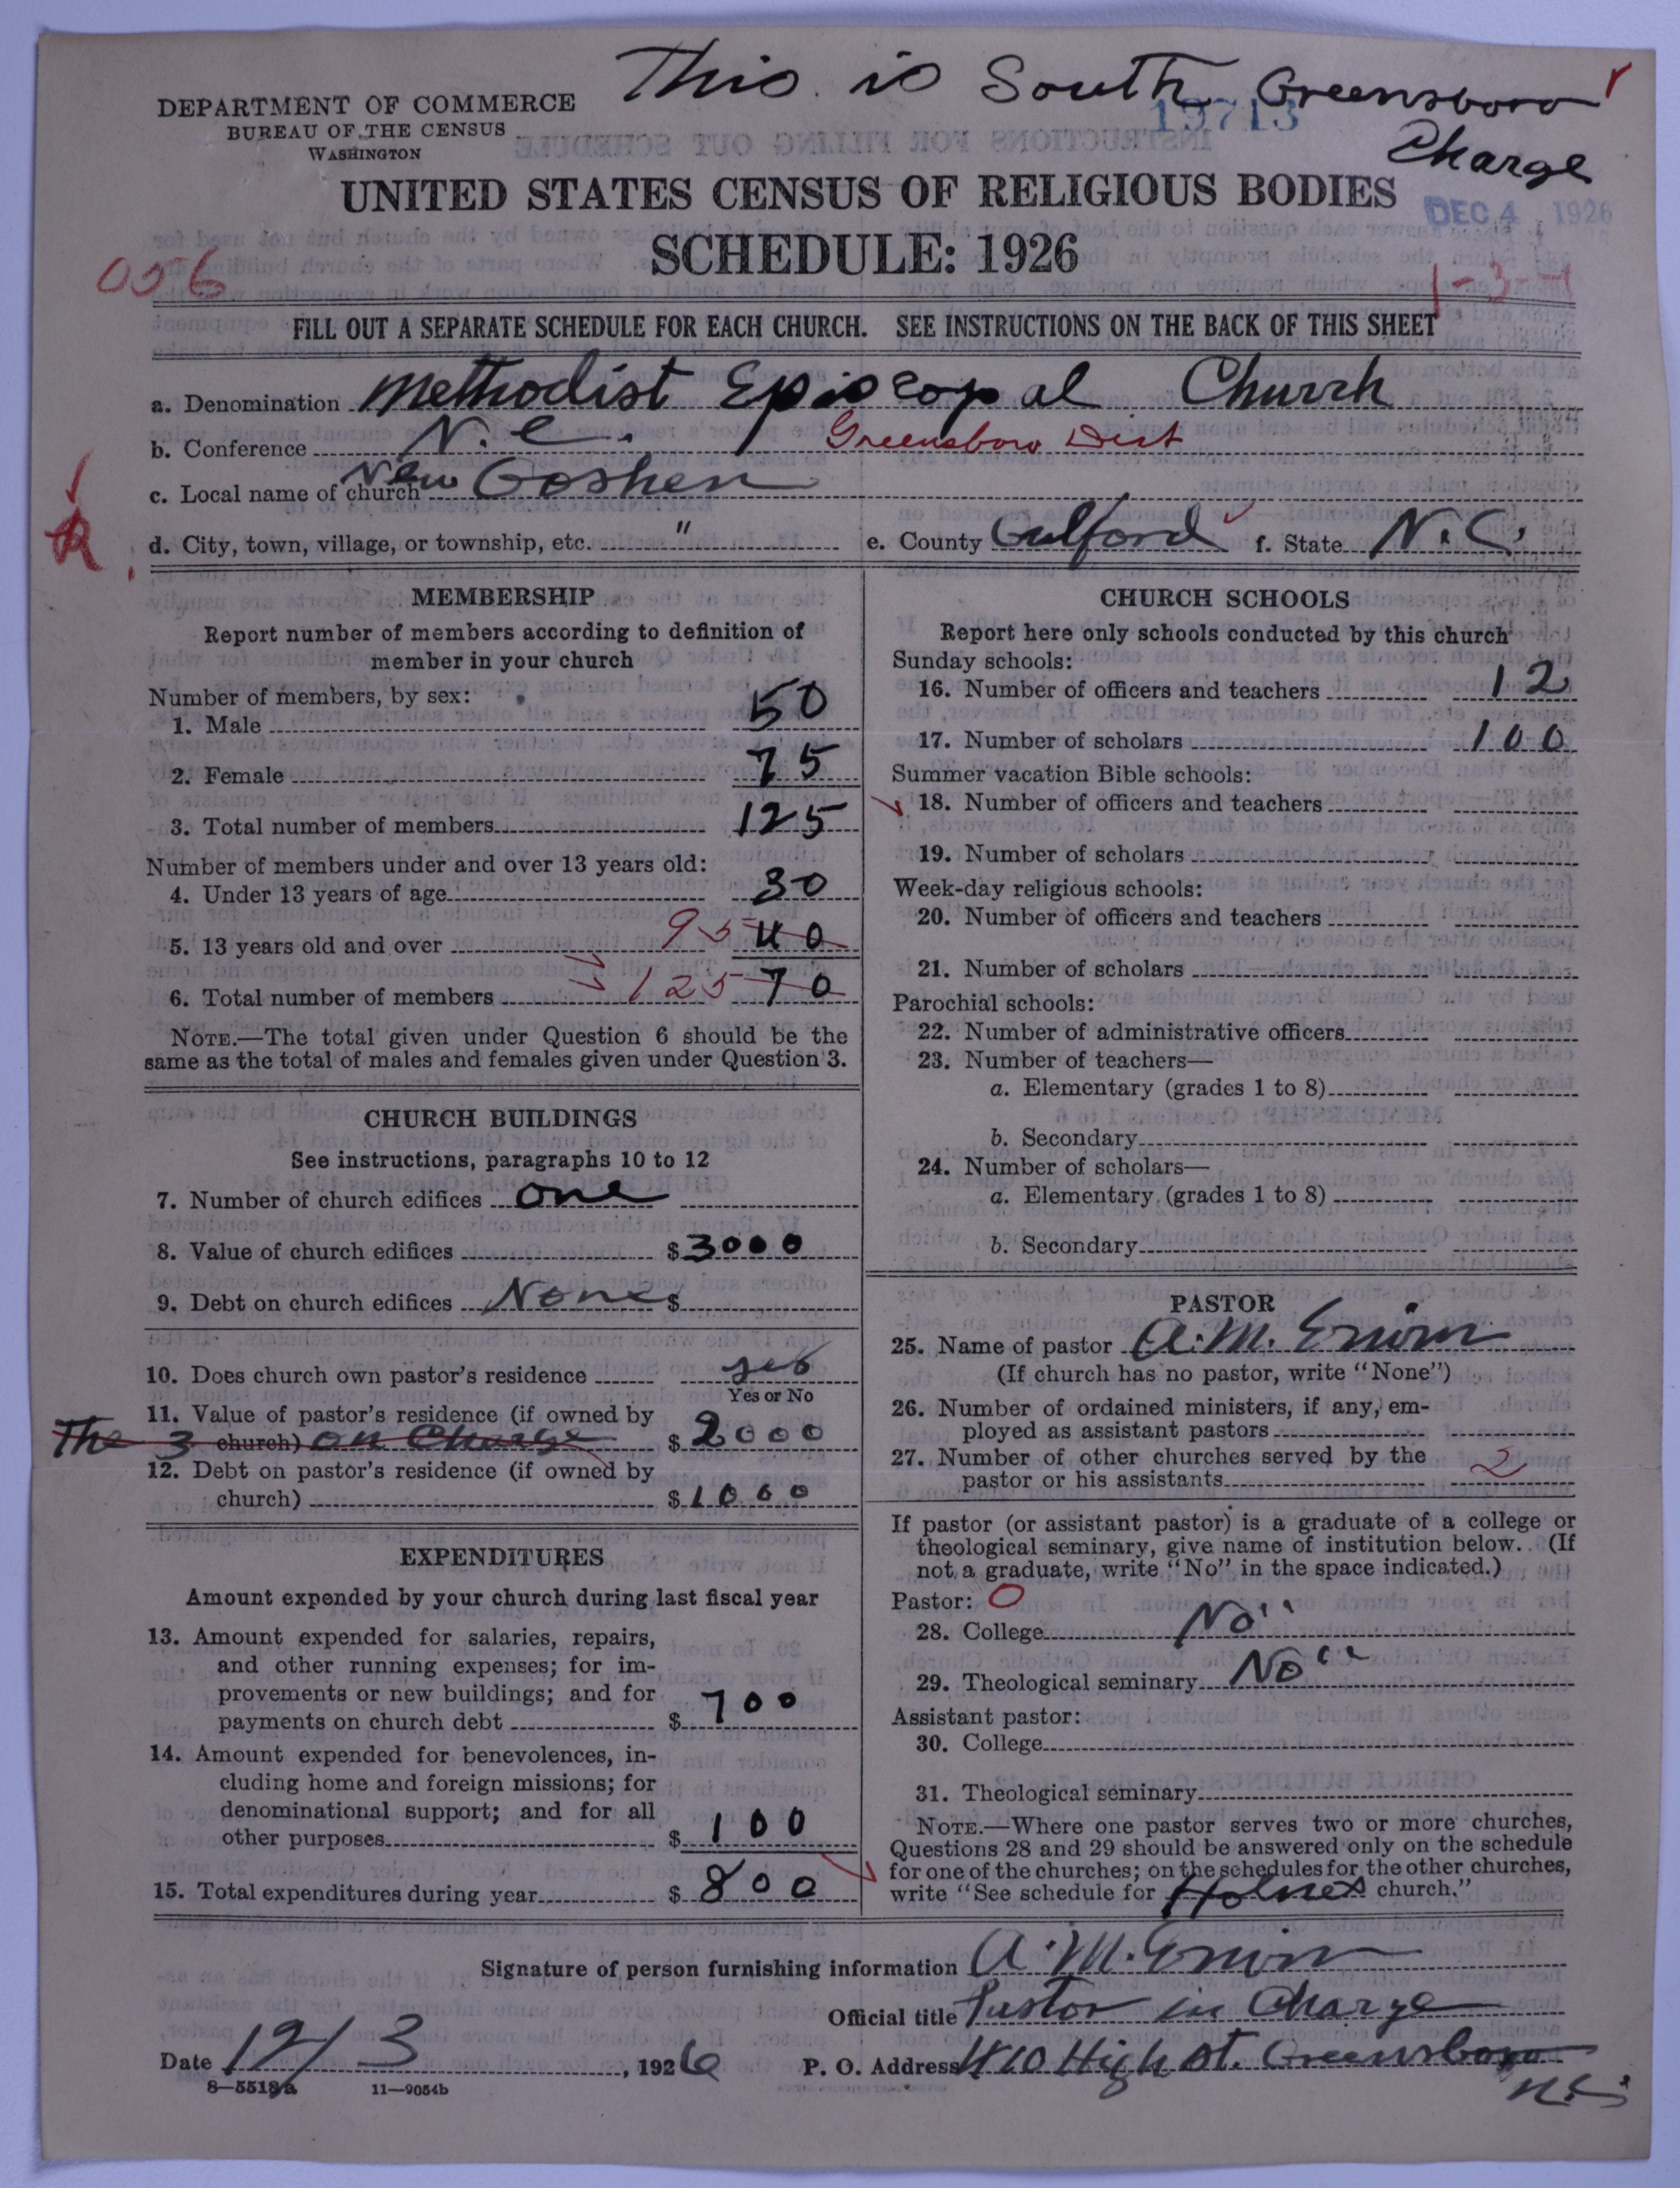 This is South Greensboro
Charge
19713
DEPARTMENT OF COMMERCE
BUREAU OF THE CENSUS
WASHINGTON
UNITED STATES CENSUS OF RELIGIOUS BODIES
SCHEDULE: 1926
DEC 4 1926
056
1-3-1
FILL OUT A SEPARATE SCHEDULE FOR EACH CHURCH. SEE INSTRUCTIONS ON THE BACK OF THIS SHEET
a. Denomination Methodist Episcopal Church
b. Conference N.C. Greensboro Dist
c. Local name of church New Goshen
d. City, town, village, or township, etc. " e. County Gulford f. State N.C.
R
MEMBERSHIP
Report number of members according to definition of
member in your church
Number of members, by sex:
1. Male 50
2. Female 75
3. Total number of members 125
Number of members under and over 13 years old:
4. Under 13 years of age 30
5. 13 years old and over 95 40
6. Total number of members 125 70
NOTE.—The total given under Question 6 should be the
same as the total of males and females given under Question 3.
CHURCH BUILDINGS
See instructions, paragraphs 10 to 12
7. Number of church edifices one
8. Value of church edifices $3000
9. Debt on church edifices None $
10. Does church own pastor's residence yes
Yes or No
11. Value of pastor's residence (if owned by
The 3 church) on Charge $2000
12. Debt on pastor's residence (if owned by
church) $1000
EXPENDITURES
Amount expended by your church during last fiscal year
13. Amount expended for salaries, repairs,
and other running expenses; for im-
provements or new buildings; and for
payments on church debt $700
14. Amount expended for benevolences, in-
cluding home and foreign missions; for
denominational support; and for all
other purposes $100
15. Total expenditures during year $800
CHURCH SCHOOLS
Report here only schools conducted by this church
Sunday schools:
16. Number of officers and teachers 12
17. Number of scholars 100
Summer vacation Bible schools:
18. Number of officers and teachers
19. Number of scholars
Week-day religious schools:
20. Number of officers and teachers
21. Number of scholars
Parochial schools:
22. Number of administrative officers
23. Number of teachers—
a. Elementary (grades 1 to 8)
b. Secondary
24. Number of scholars—
a. Elementary (grades 1 to 8)
b. Secondary
PASTOR
25. Name of pastor A. M. Erwin
(If church has no pastor, write "None")
26. Number of ordained ministers, if any, em-
ployed as assistant pastors
27. Number of other churches served by the
pastor or his assistants 2
If pastor (or assistant pastor) is a graduate of a college or
theological seminary, give name of institution below. (If
not a graduate, write "No" in the space indicated.)
Pastor: O
28. College No"
29. Theological seminary No"
Assistant pastor:
30. College
31. Theological seminary
NOTE.—Where one pastor serves two or more churches,
Questions 28 and 29 should be answered only on the schedule
for one of the churches; on the schedules for the other churches,
write "See schedule for church."
Signature of person furnishing information A. M. Erwin
Official title Pastor in Charge
Date 12/3, 1926 P. O. Address 410 High St. Greensboro
N.C.
8—5518a 11—9054b